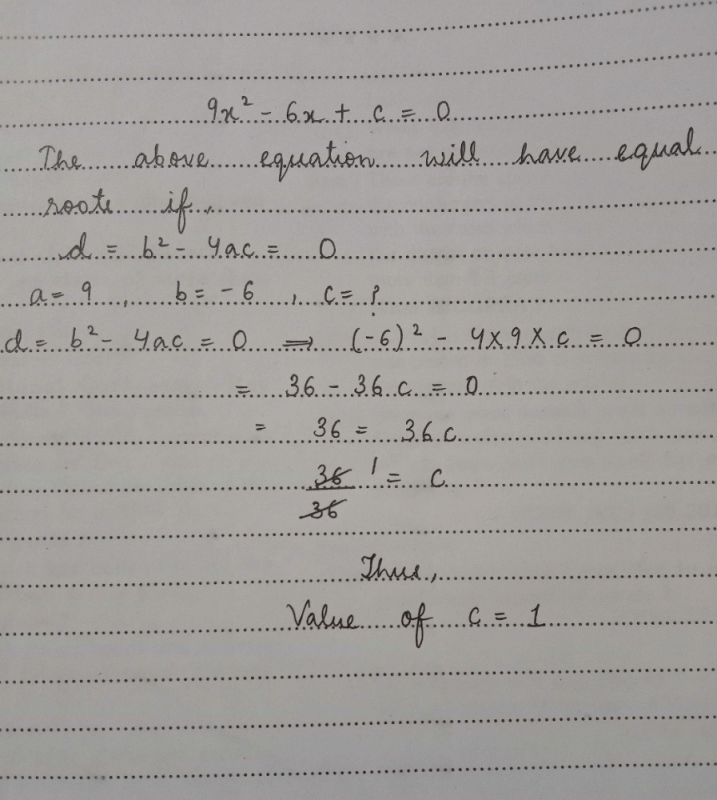 9x² - 6x + c = 0
The above equation will have equal
roots if,
d = b² - 4ac = 0
a = 9 , b = -6 , c = ?
d = b² - 4ac = 0 ⟹ (-6)² - 4×9×c = 0
= 36 - 36c = 0
= 36 = 36c
36/36 1 = c
Thus,
Value of c = 1